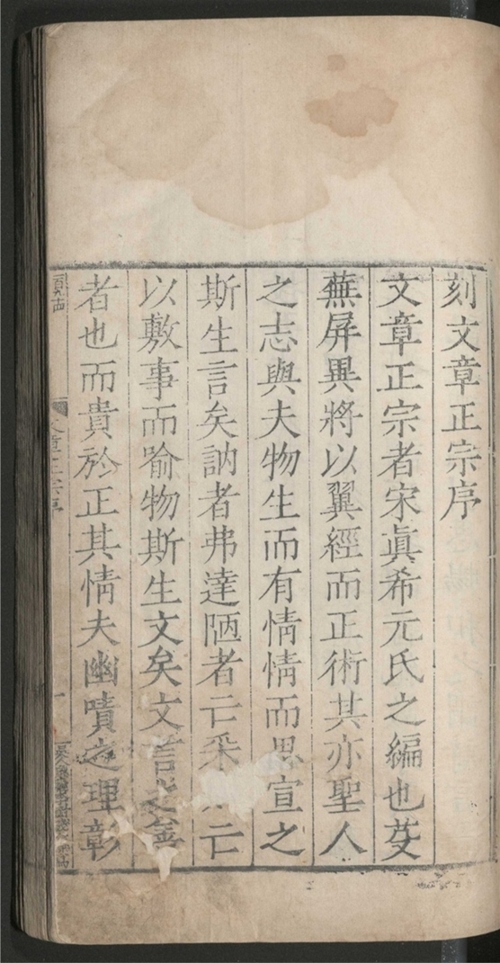 刻文章正宗序
文章正宗者宋眞希元氏之編也芟
蕪屏異將以翼經而正術其亦聖人
之志與夫物生而有情情而思宣之
斯生言矣訥者弗達陋者亡采亡
以敷事而喻物斯生文矣文言
者也而貴於正其情夫幽嘖之理彰